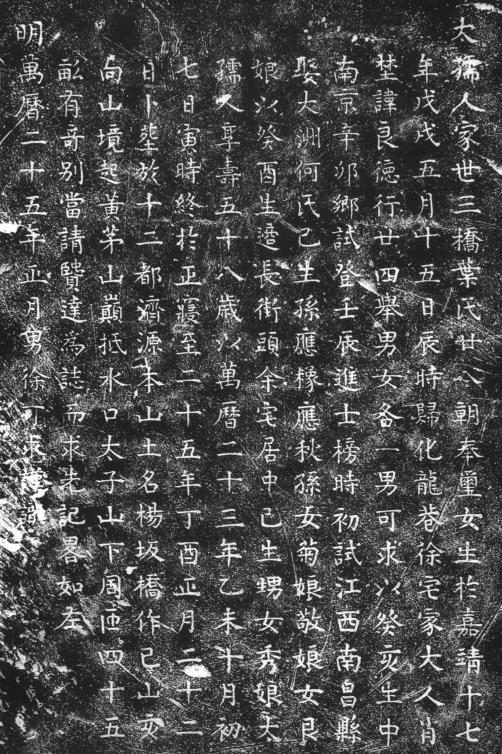 太孺人家世三橋葉氏廿八朝奉璽女生於嘉靖十七
年戊戌五月十五日辰時歸化龍巷徐宅家大人肖
埜諱良德行廿四舉男女各一男可求以癸亥生中
南京辛卯鄉試登壬辰進士榜時初試江西南昌縣
娶大洲何氏已生孫應椽應秋孫女菊娘敬娘女良
娘以癸酉生適長街頭余宅居中已生甥女秀娘太
孺人享壽五十八歲以萬曆二十三年乙未十月初
七日寅時終於正寢至二十五年丁酉正月二十二
日卜塟於十二都濟源本山土名楊坂橋作己山亥
向山境起黃茅山巔抵水口太子山下周匝四十五
畝有奇別當請賢達為誌而求先記畧如左
明萬曆二十五年正月男徐可求謹